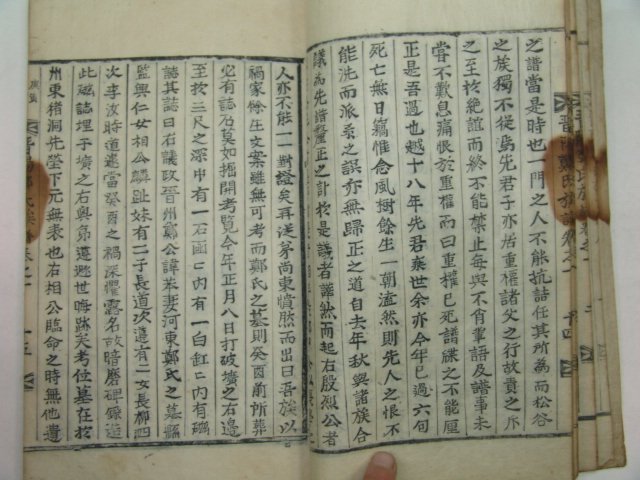 之譜當是時也一門之人不能抗詰任其所為而松谷
之族獨不從焉先君子亦居重權諸父之行故責之斥
之至於絶誼而終不能禁止每與不肖輩語及譜事未
嘗不歎息痛恨於重權而曰重權已死譜牒之不能厘
正是吾過也越十八年先君棄世余亦今年已過六旬
死亡無日竊惟念風樹餘生一朝溘然則先人之恨不
能洗而派系之誤亦無歸正之道自去年秋與諸族合
議為先譜釐正之計於是議者譁然而起右殷烈公者
人亦不能一一對證矣再從茅尚東憤然而出曰吾族以
禍家餘生文案雖無可考而鄭氏之墓則癸酉前所葬
它有誌石莫如掘開考覽今年正月八日打破壙之右邊
至於三尺之深中有一石函函內有一白缸缸內有磁
誌其誌曰右議政晉州鄭公諱苯妻河東鄭氏之墓縣
監興仁女相公麟趾妹有二子長道次邊有二女長柳四
次李汝時道遇當癸酉之禍深懼露名故暗磨碑錄造
此磁誌埋于壙之右與弟遵遯世晦跡矣考位墓在於
州東楮洞先塋下元無表也右相公臨命之時無他遺
晉陽鄭氏族譜卷之一
十四
十五